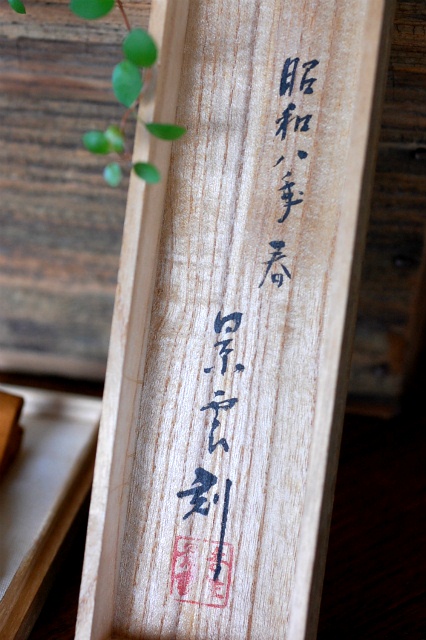 昭和八年春
景雲刻